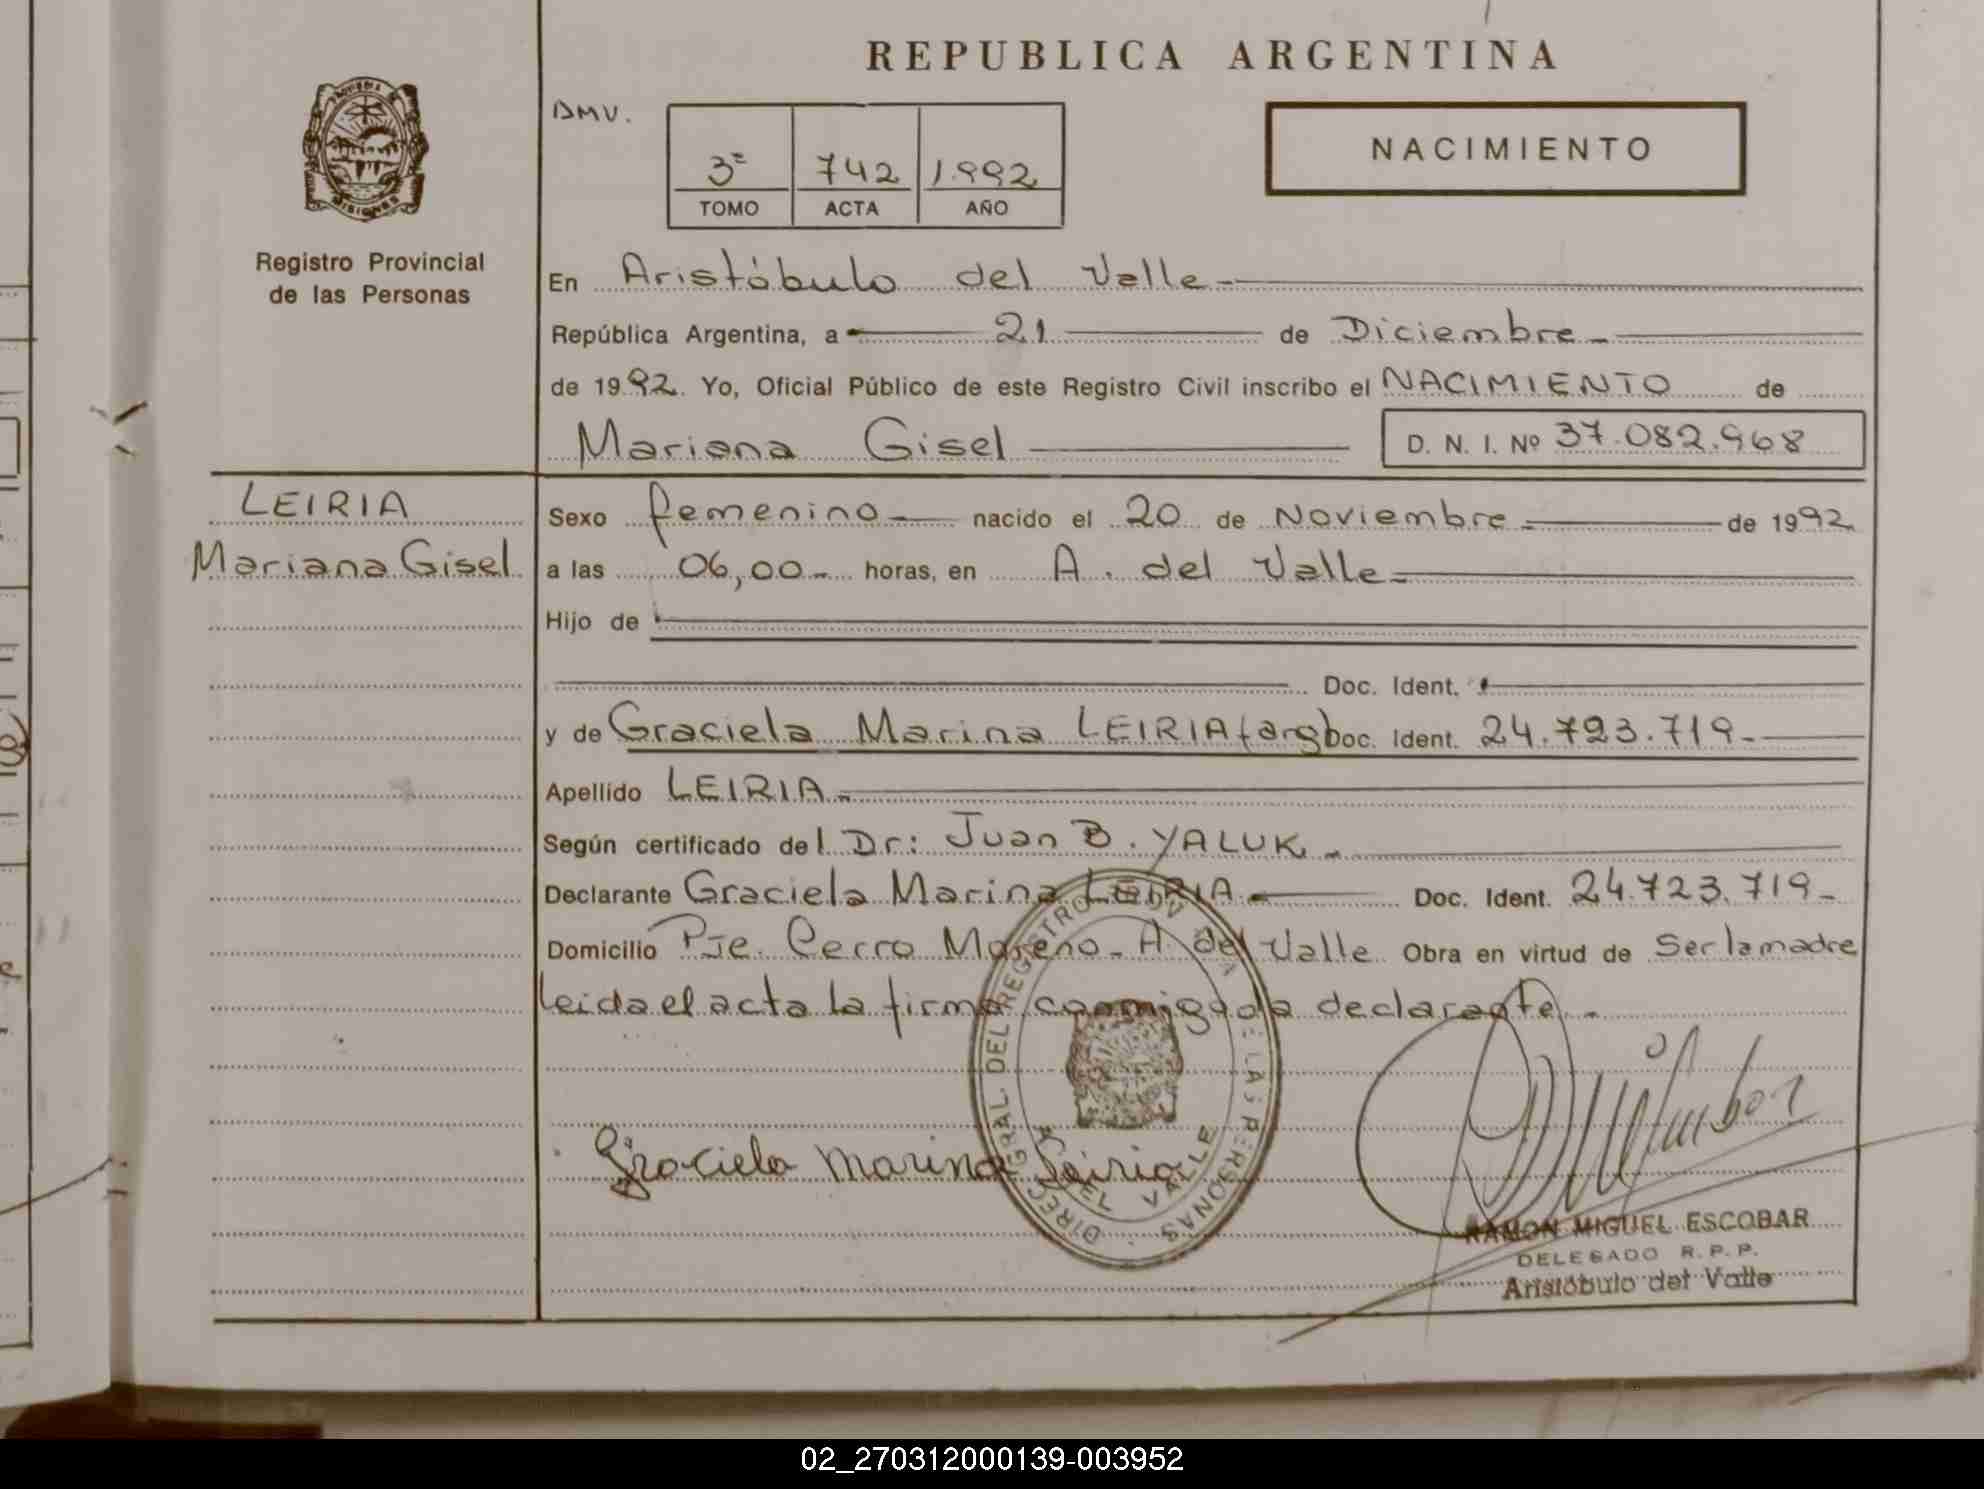 REPUBLICA ARGENTINA
DMV.
3º 742 1.992
TOMO ACTA AÑO
NACIMIENTO
MISIONES
Registro Provincial
de las Personas
En Aristóbulo del Valle.-
República Argentina, a 21 de Diciembre.-
de 1992. Yo, Oficial Público de este Registro Civil inscribo el NACIMIENTO de
Mariana Gisel
D. N. I. Nº 37.082.968
LEIRIA
Mariana Gisel
Sexo femenino nacido el 20 de Noviembre.- de 1992
a las 06,00.- horas, en A. del Valle.-
Hijo de
Doc. Ident.
y de Graciela Marina LEIRIA (arg) Doc. Ident. 24.723.719.-
Apellido LEIRIA.-
Según certificado del Dr: Juan B. YALUK.-
Declarante Graciela Marina LEIRIA.- Doc. Ident. 24.723.719-
Domicilio Pje. Cerro Moreno.- A. del Valle Obra en virtud de Ser la madre
leida el acta la firma conmigo la declarante.-
Graciela Marina Leiria
DIREC. GRAL. DEL REGISTRO DE LAS PERSONAS
DEL VALLE
RAMON MIGUEL ESCOBAR
DELEGADO R.P.P.
Aristóbulo del Valle
02_270312000139-003952